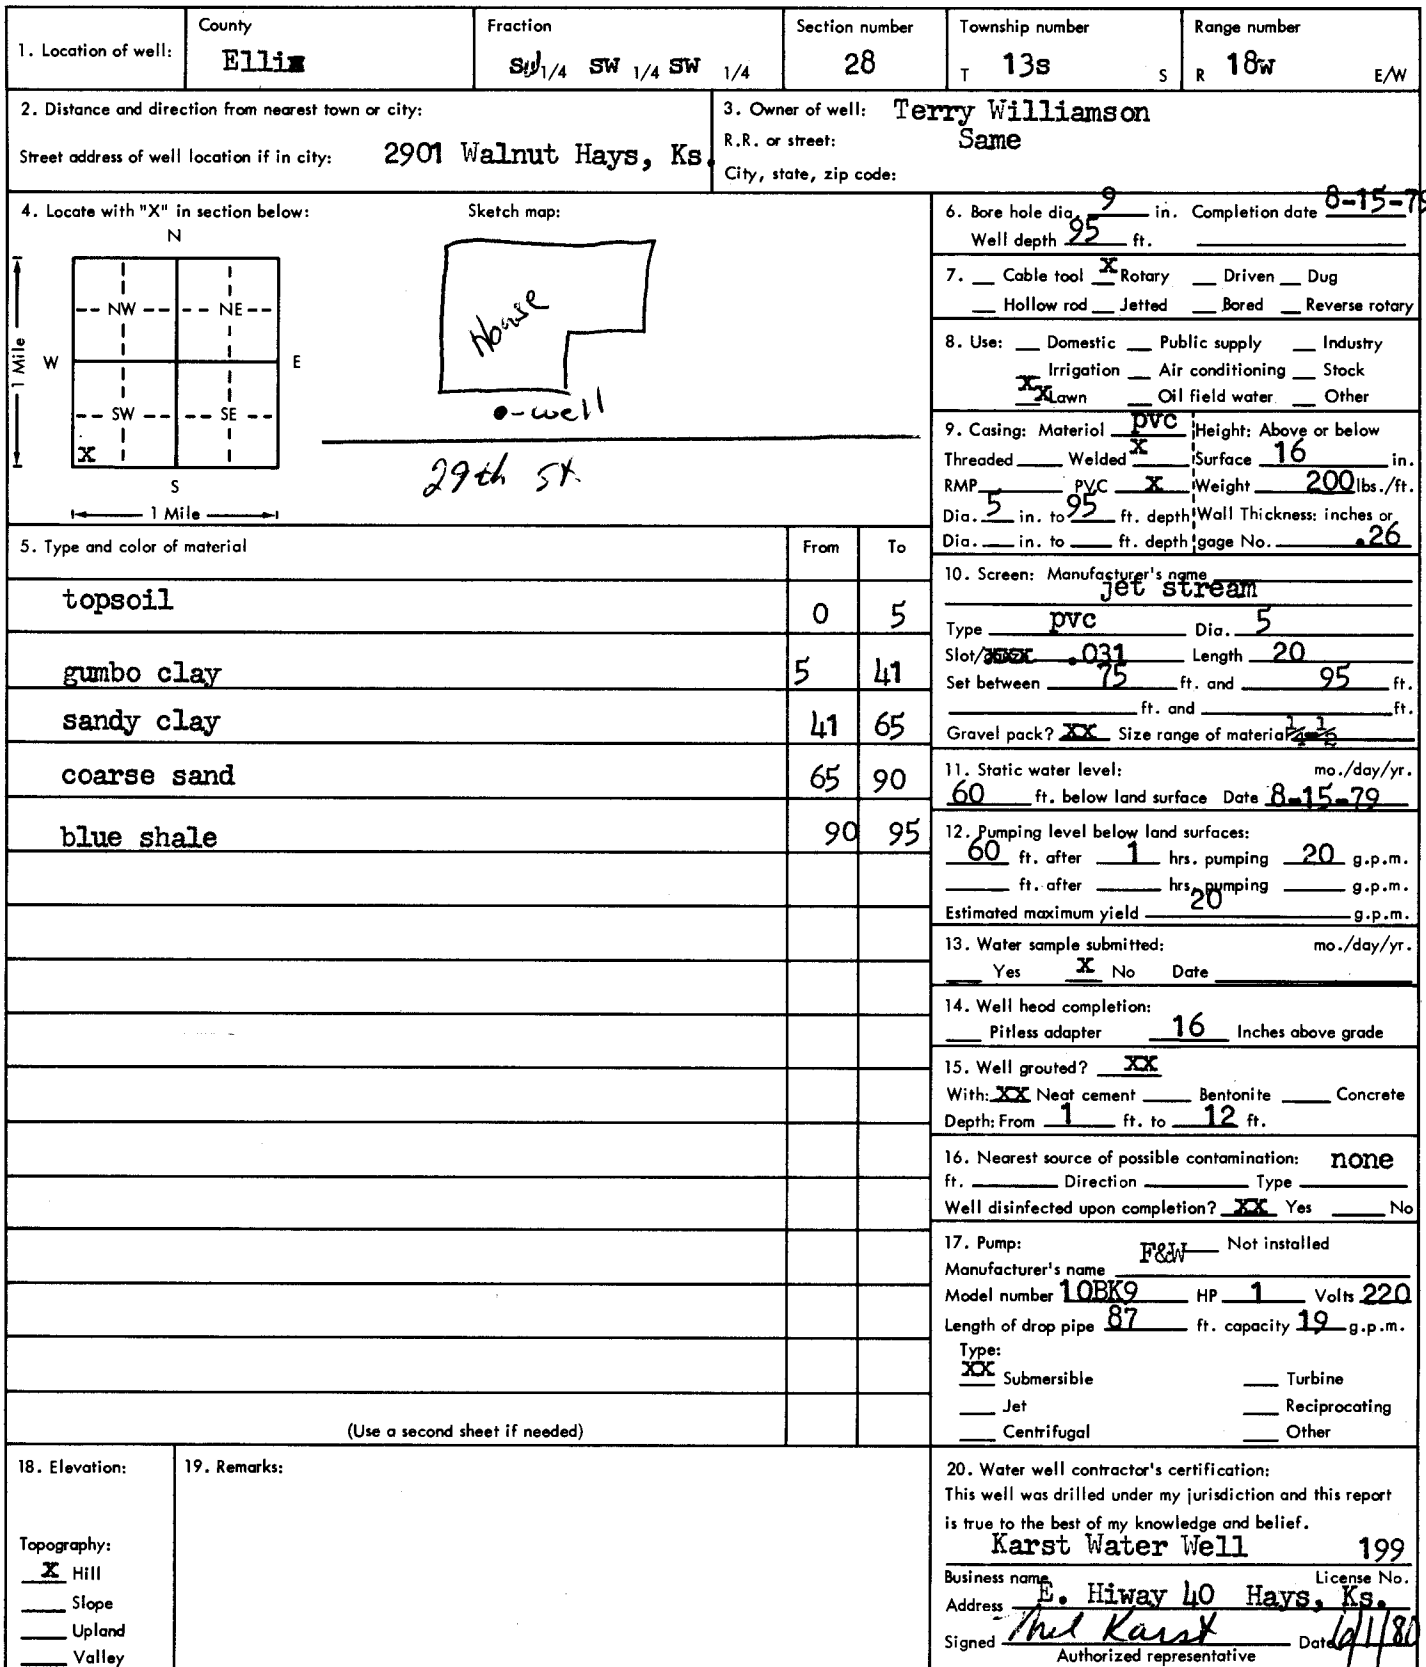 1. Location of well:
County
Ellis
Fraction
SW 1/4 SW 1/4 SW 1/4
Section number
28
Township number
T 13s S
Range number
R 18w E/W
2. Distance and direction from nearest town or city:
Street address of well location if in city: 2901 Walnut Hays, Ks.
3. Owner of well: Terry Williamson
R.R. or street: Same
City, state, zip code:
4. Locate with "X" in section below:
N
NW NE
W E
1 Mile
SW SE
X
S
1 Mile
Sketch map:
House
-well
29th St.
5. Type and color of material From To
topsoil 0 5
gumbo clay 5 41
sandy clay 41 65
coarse sand 65 90
blue shale 90 95
(Use a second sheet if needed)
6. Bore hole dia. 9 in. Completion date 8-15-79
Well depth 95 ft.
7. __ Cable tool X Rotary __ Driven __ Dug
__ Hollow rod __ Jetted __ Bored __ Reverse rotary
8. Use: __ Domestic __ Public supply __ Industry
__ Irrigation __ Air conditioning __ Stock
XX Lawn __ Oil field water __ Other
9. Casing: Material pvc
Threaded __ Welded X
RMP __ PVC X
Dia. 5 in. to 95 ft. depth
Dia. __ in. to __ ft. depth
Height: Above or below
Surface 16 in.
Weight 200 lbs./ft.
Wall Thickness: inches or
gage No. .26
10. Screen: Manufacturer's name
jet stream
Type pvc Dia. 5
Slot/ .031 Length 20
Set between 75 ft. and 95 ft.
__ ft. and __ ft.
Gravel pack? XX Size range of material 1/4-1/2
11. Static water level: mo./day/yr.
60 ft. below land surface Date 8-15-79
12. Pumping level below land surfaces:
60 ft. after 1 hrs. pumping 20 g.p.m.
__ ft. after __ hrs. pumping __ g.p.m.
Estimated maximum yield 20 g.p.m.
13. Water sample submitted: mo./day/yr.
__ Yes X No Date
14. Well head completion:
__ Pitless adapter 16 Inches above grade
15. Well grouted? XX
With: XX Neat cement __ Bentonite __ Concrete
Depth: From 1 ft. to 12 ft.
16. Nearest source of possible contamination: none
ft. __ Direction __ Type __
Well disinfected upon completion? XX Yes __ No
17. Pump: __ Not installed
Manufacturer's name F&W
Model number 10BK9 HP 1 Volts 220
Length of drop pipe 87 ft. capacity 19 g.p.m.
Type:
XX Submersible __ Turbine
__ Jet __ Reciprocating
__ Centrifugal __ Other
18. Elevation:
Topography:
X Hill
__ Slope
__ Upland
__ Valley
19. Remarks:
20. Water well contractor's certification:
This well was drilled under my jurisdiction and this report
is true to the best of my knowledge and belief.
Karst Water Well 199
Business name License No.
Address E. Hiway 40 Hays, Ks.
Signed Karst Date 6/1/80
Authorized representative